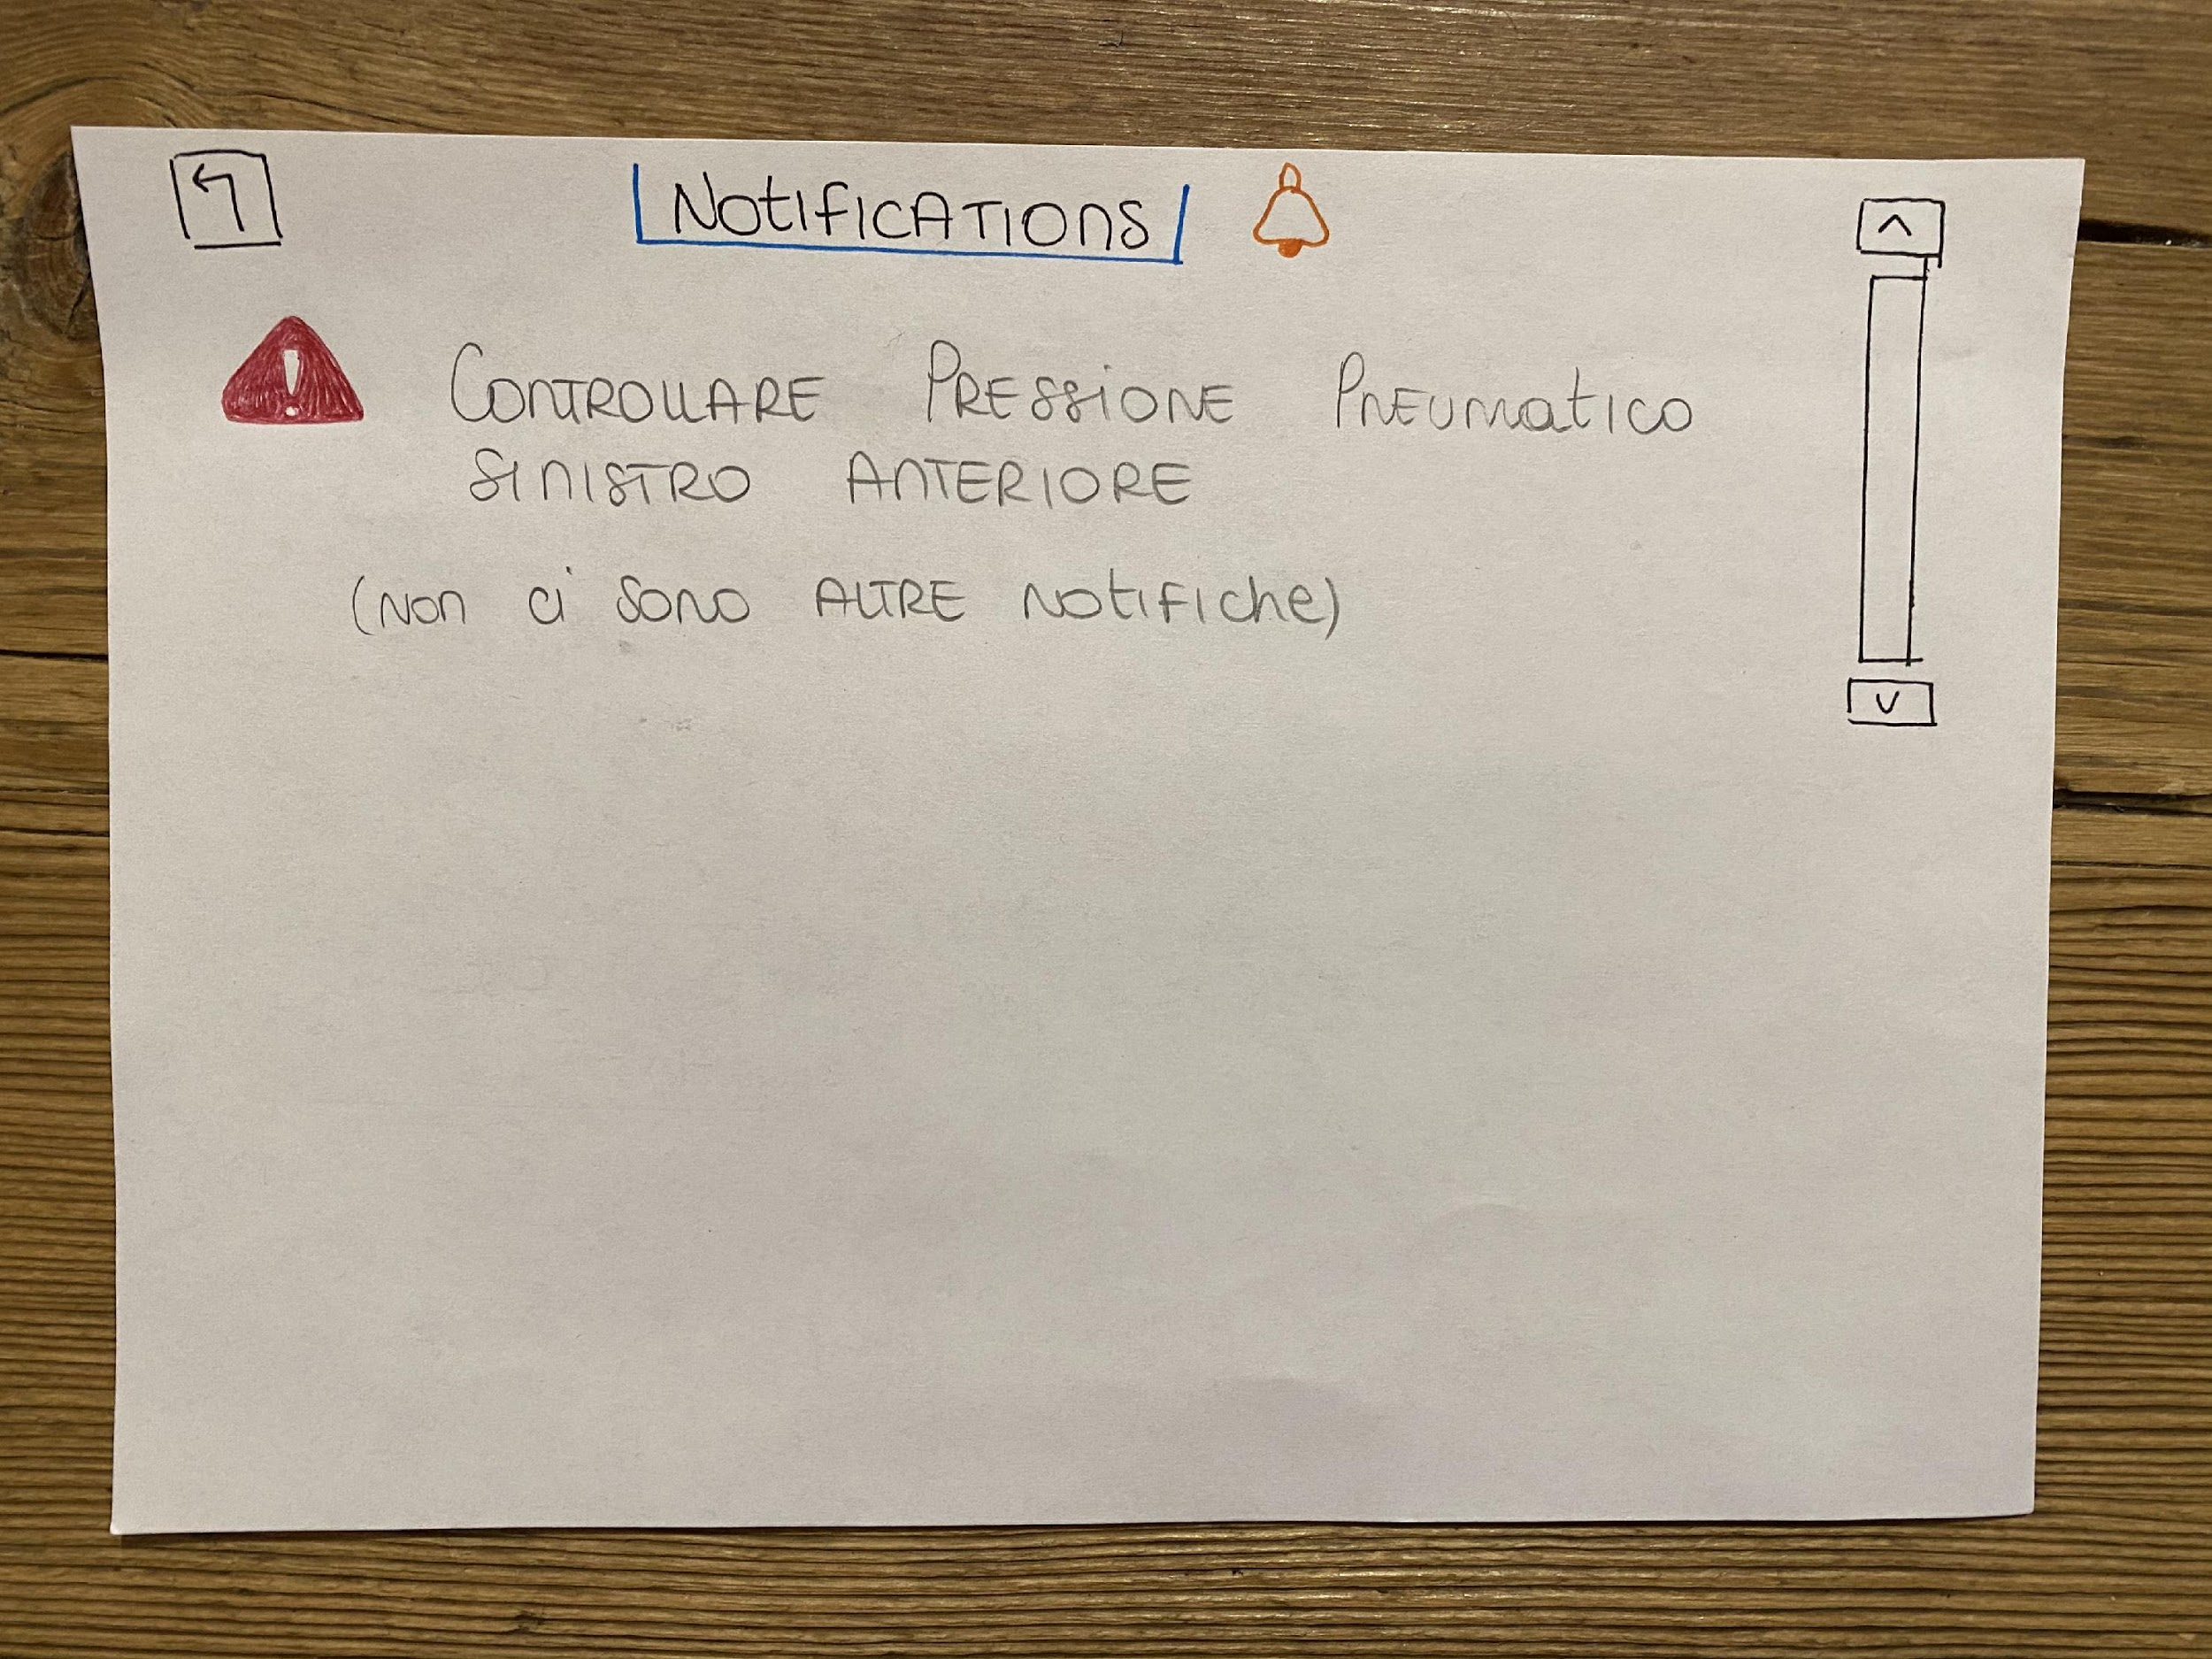 NOTIFICATIONS
CONTROLLARE PRESSIONE PNEUMATICO
SINISTRO ANTERIORE
(NON CI SONO ALTRE NOTIFICHE)